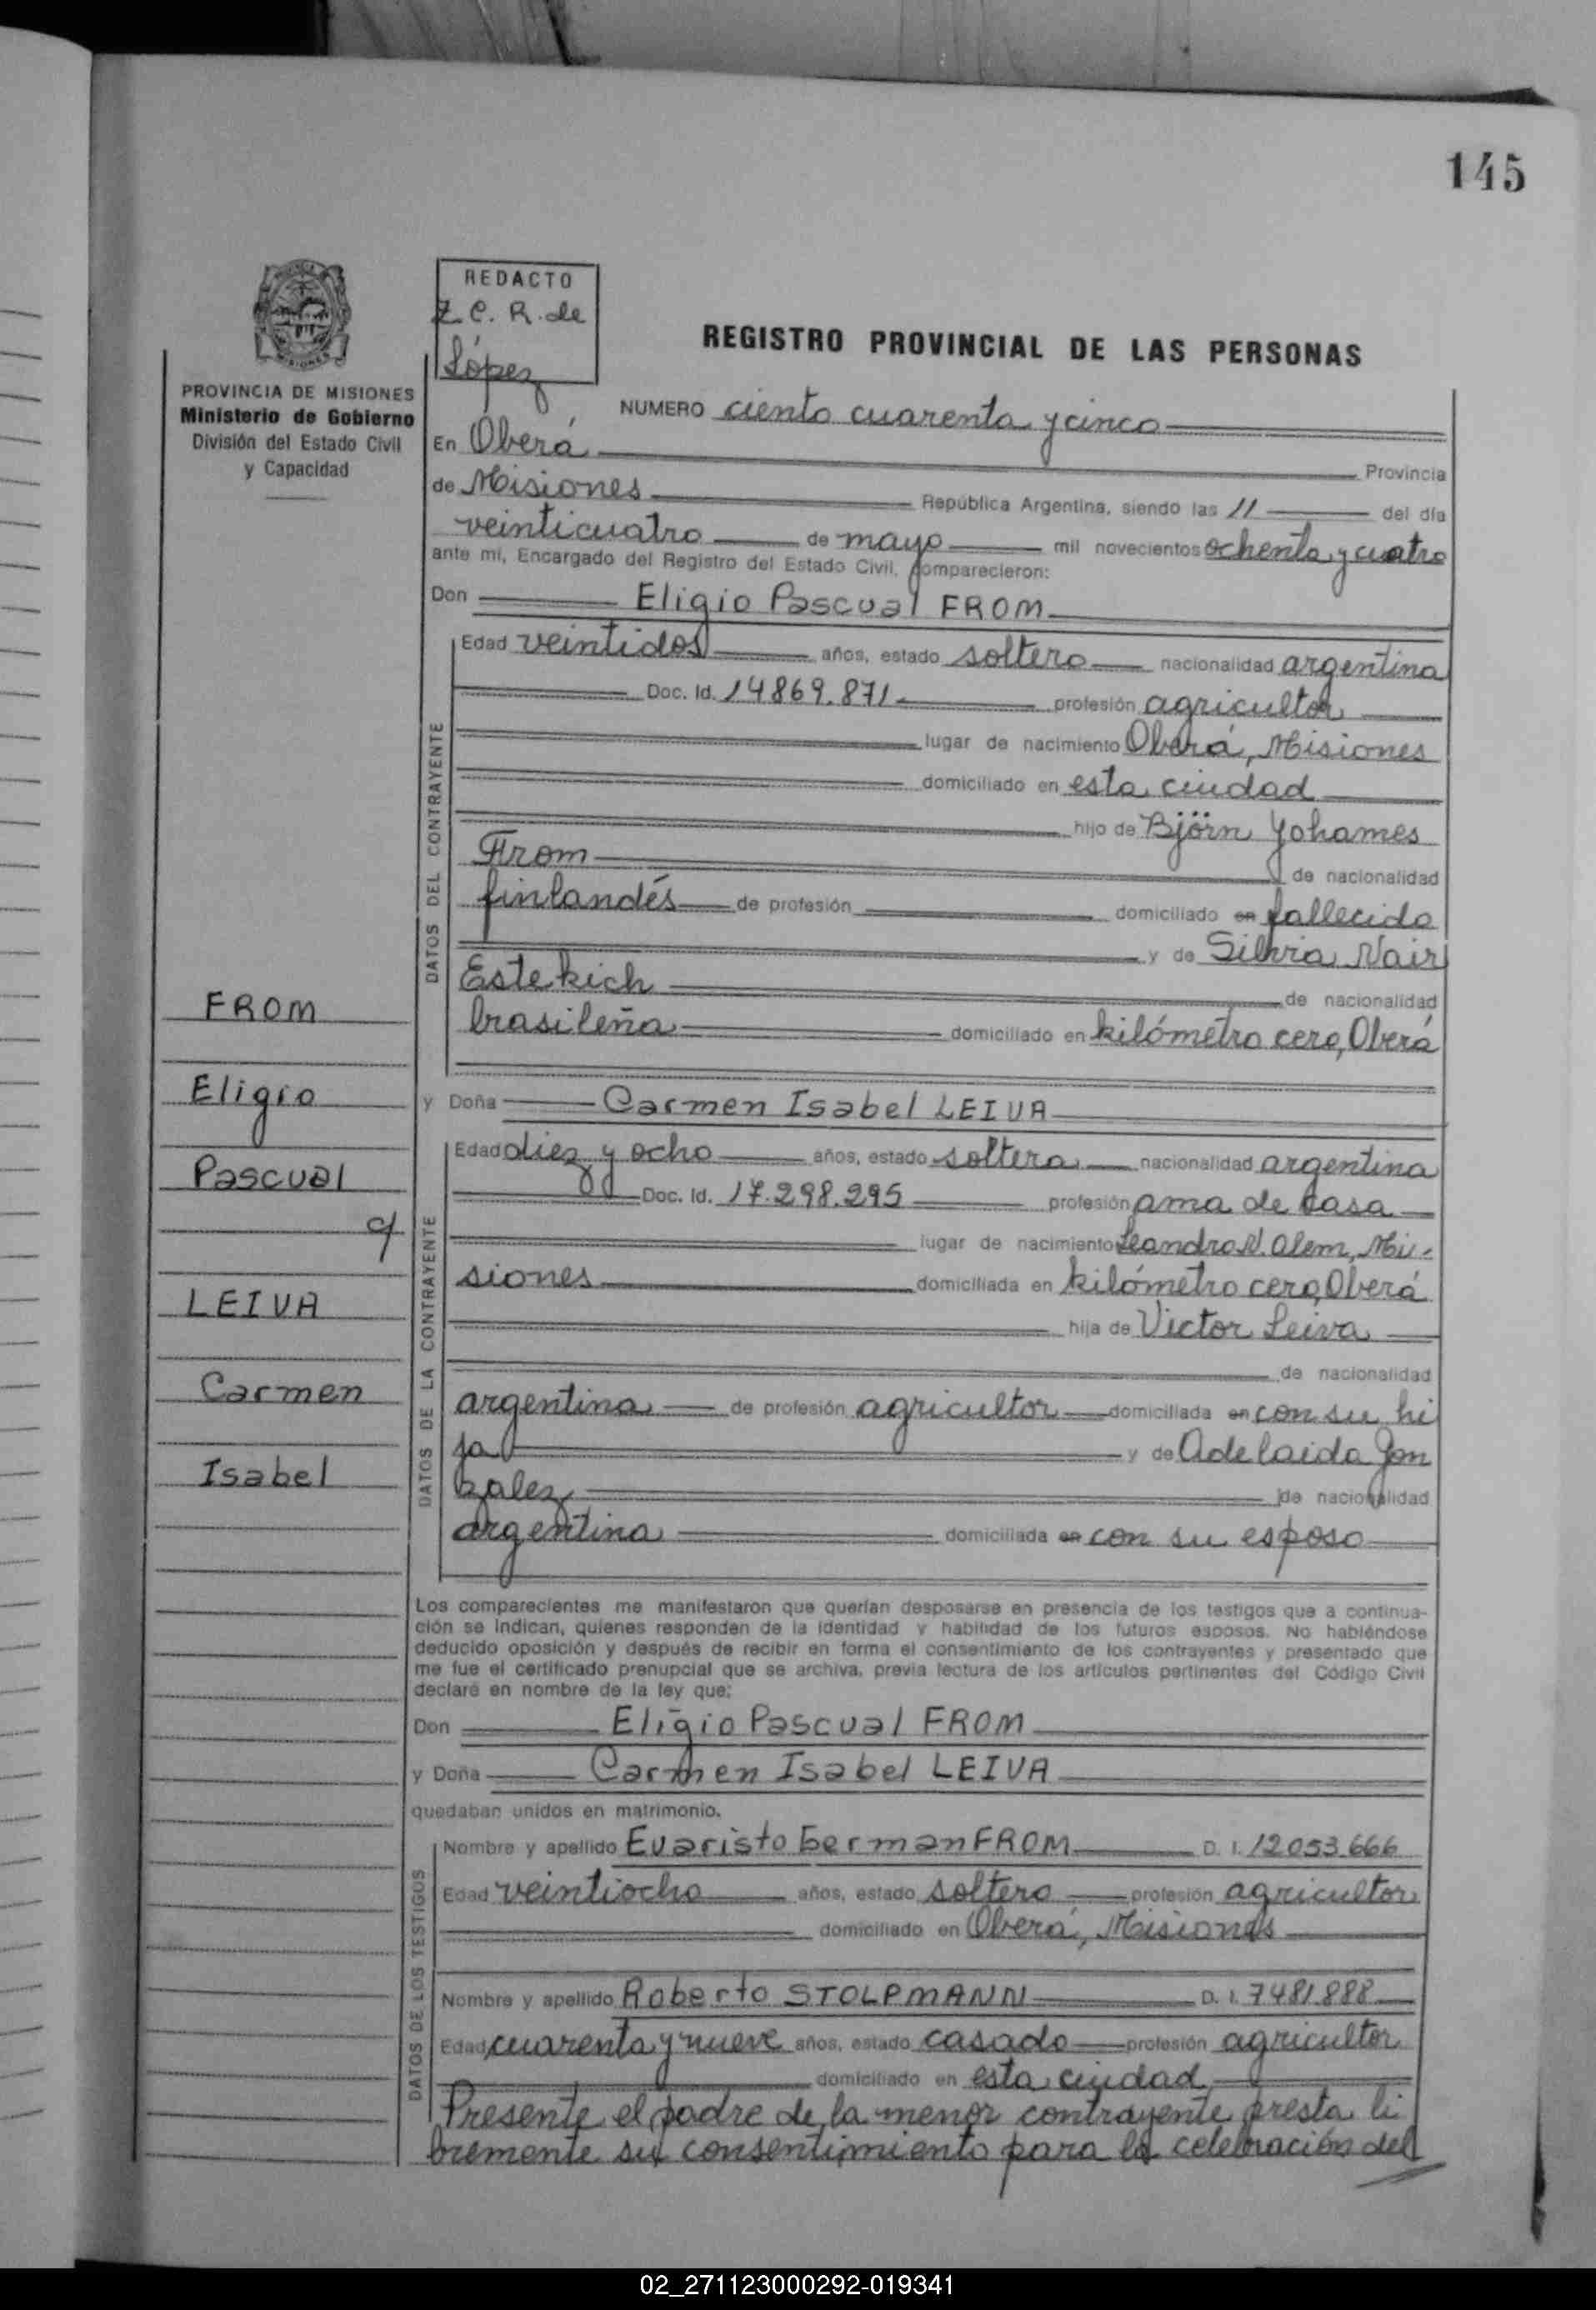 145
REDACTO
Z. C. R. de
López
REGISTRO PROVINCIAL DE LAS PERSONAS
PROVINCIA DE MISIONES
Ministerio de Gobierno
División del Estado Civil
y Capacidad
NUMERO ciento cuarenta y cinco
En Oberá Provincia
de Misiones República Argentina, siendo las 11 del día
veinticuatro de mayo mil novecientos ochenta y cuatro
ante mi, Encargado del Registro del Estado Civil, comparecieron:
Don Eligio Pascual FROM
DATOS DEL CONTRAYENTE
Edad veintidos años, estado soltero nacionalidad argentina
Doc. Id. 14869.871 profesión agricultor
lugar de nacimiento Oberá, Misiones
domiciliado en esta ciudad
hijo de Björn Yohames
From de nacionalidad
finlandés de profesión domiciliado en fallecido
y de Silvia Nair
Estekich de nacionalidad
brasileña domiciliado en kilómetro cero, Oberá
y Doña Carmen Isabel LEIVA
DATOS DE LA CONTRAYENTE
Edad diez y ocho años, estado soltera nacionalidad argentina
Doc. Id. 17.298.295 profesión ama de casa
lugar de nacimiento Leandro N. Alem, Mi-
siones domiciliada en kilómetro cero, Oberá
hija de Victor Leiva
de nacionalidad
argentina de profesión agricultor domiciliada en con su hi
ja y de Adelaida Gon
zalez de nacionalidad
argentina domiciliada en con su esposo
FROM
Eligio
Pascual
c/
LEIVA
Carmen
Isabel
Los comparecientes me manifestaron que querían desposarse en presencia de los testigos que a continua-
ción se indican, quienes responden de la identidad y habilidad de los futuros esposos. No habiéndose
deducido oposición y después de recibir en forma el consentimiento de los contrayentes y presentado que
me fue el certificado prenupcial que se archiva, previa lectura de los artículos pertinentes del Código Civil
declaré en nombre de la ley que:
Don Eligio Pascual FROM
y Doña Carmen Isabel LEIVA
quedaban unidos en matrimonio.
DATOS DE LOS TESTIGOS
Nombre y apellido Evaristo German FROM D. I. 12053666
Edad veintiocho años, estado soltero profesión agricultor
domiciliado en Oberá, Misiones
Nombre y apellido Roberto STOLPMANN D. I. 7481888
Edad cuarenta y nueve años, estado casado profesión agricultor
domiciliado en esta ciudad
Presente el padre de la menor contrayente presta li
bremente su consentimiento para la celebración del
02_271123000292-019341